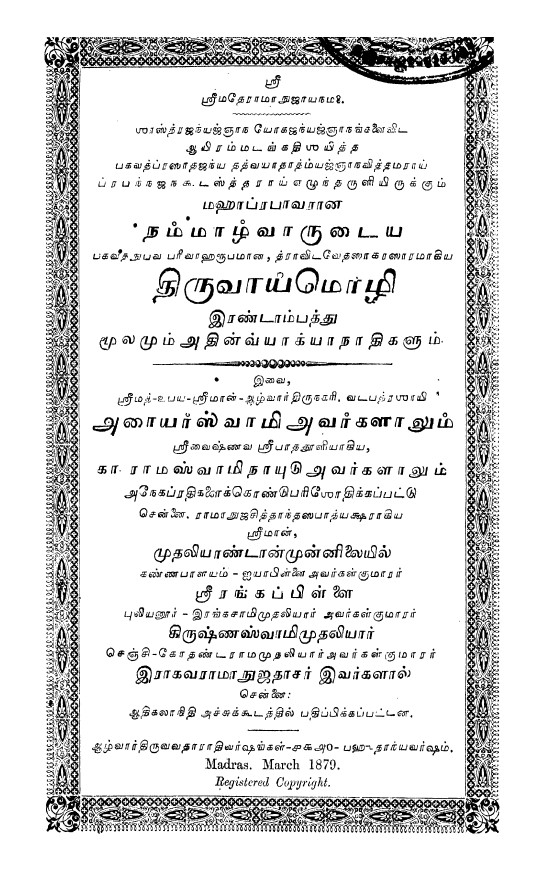 ஸ்ரீ
ஸ்ரீமதேராமாநுஜாயநம:.
ஶாஸ்த்ரஜந்யஜ்ஞாந யோகஜந்யஜ்ஞாநங்களைவிட
ஆயிரம்மடங்கதிஶயித்த
பகவத்ப்ரஸாதஜந்ய தத்வயாதாத்ம்யஜ்ஞாநவித்தமராய்
ப்ரபந்நஜநகூடஸ்த்தராய் எழுந்தருளியிருக்கும்
மஹாப்ரபாவரான
நம்மாழ்வாருடைய
பகவதநுபவ பரிவாஹரூபமான, த்ராவிடவேதஸாகரஸாரமாகிய
திருவாய்மொழி
இரண்டாம்பத்து
மூலமும் அதின்வ்யாக்யாநாதிகளும்.
இவை,
ஸ்ரீமத்-உபய-ஸ்ரீமான்-ஆழ்வார்திருநகரி. வடபத்ரஶாயி
அரையர்ஸ்வாமி அவர்களாலும்
ஸ்ரீவைஷ்ணவ ஸ்ரீபாததூளியாகிய,
கா. ராமஸ்வாமிநாயுடு அவர்களாலும்
அநேகப்ரதிகளைக்கொண்டுபரிஶோதிக்கப்பட்டு
சென்னை. ராமாநுஜசித்தாந்தஸபாத்யக்ஷராகிய
ஸ்ரீமான்,
முதலியாண்டான்முன்னிலையில்
கண்ணபாளையம் - ஐயாபிள்ளை அவர்கள்குமாரர்
ஸ்ரீரங்கப்பிள்ளை
புலியனூர் - இரங்கசாமிமுதலியார் அவர்கள்குமாரர்
கிருஷ்ணஸ்வாமிமுதலியார்
செஞ்சி-கோதண்டராமமுதலியார்அவர்கள்குமாரர்
இராகவராமாநுஜதாசர் இவர்களால்
சென்னை:
ஆதிகலாநிதி அச்சுக்கூடத்தில் பதிப்பிக்கப்பட்டன.
ஆழ்வார்திருவவதாராதிவர்ஷங்கள்-௪௯௮௦- பஹுதாந்யவர்ஷம்.
Madras. March 1879.
Registered Copyright.